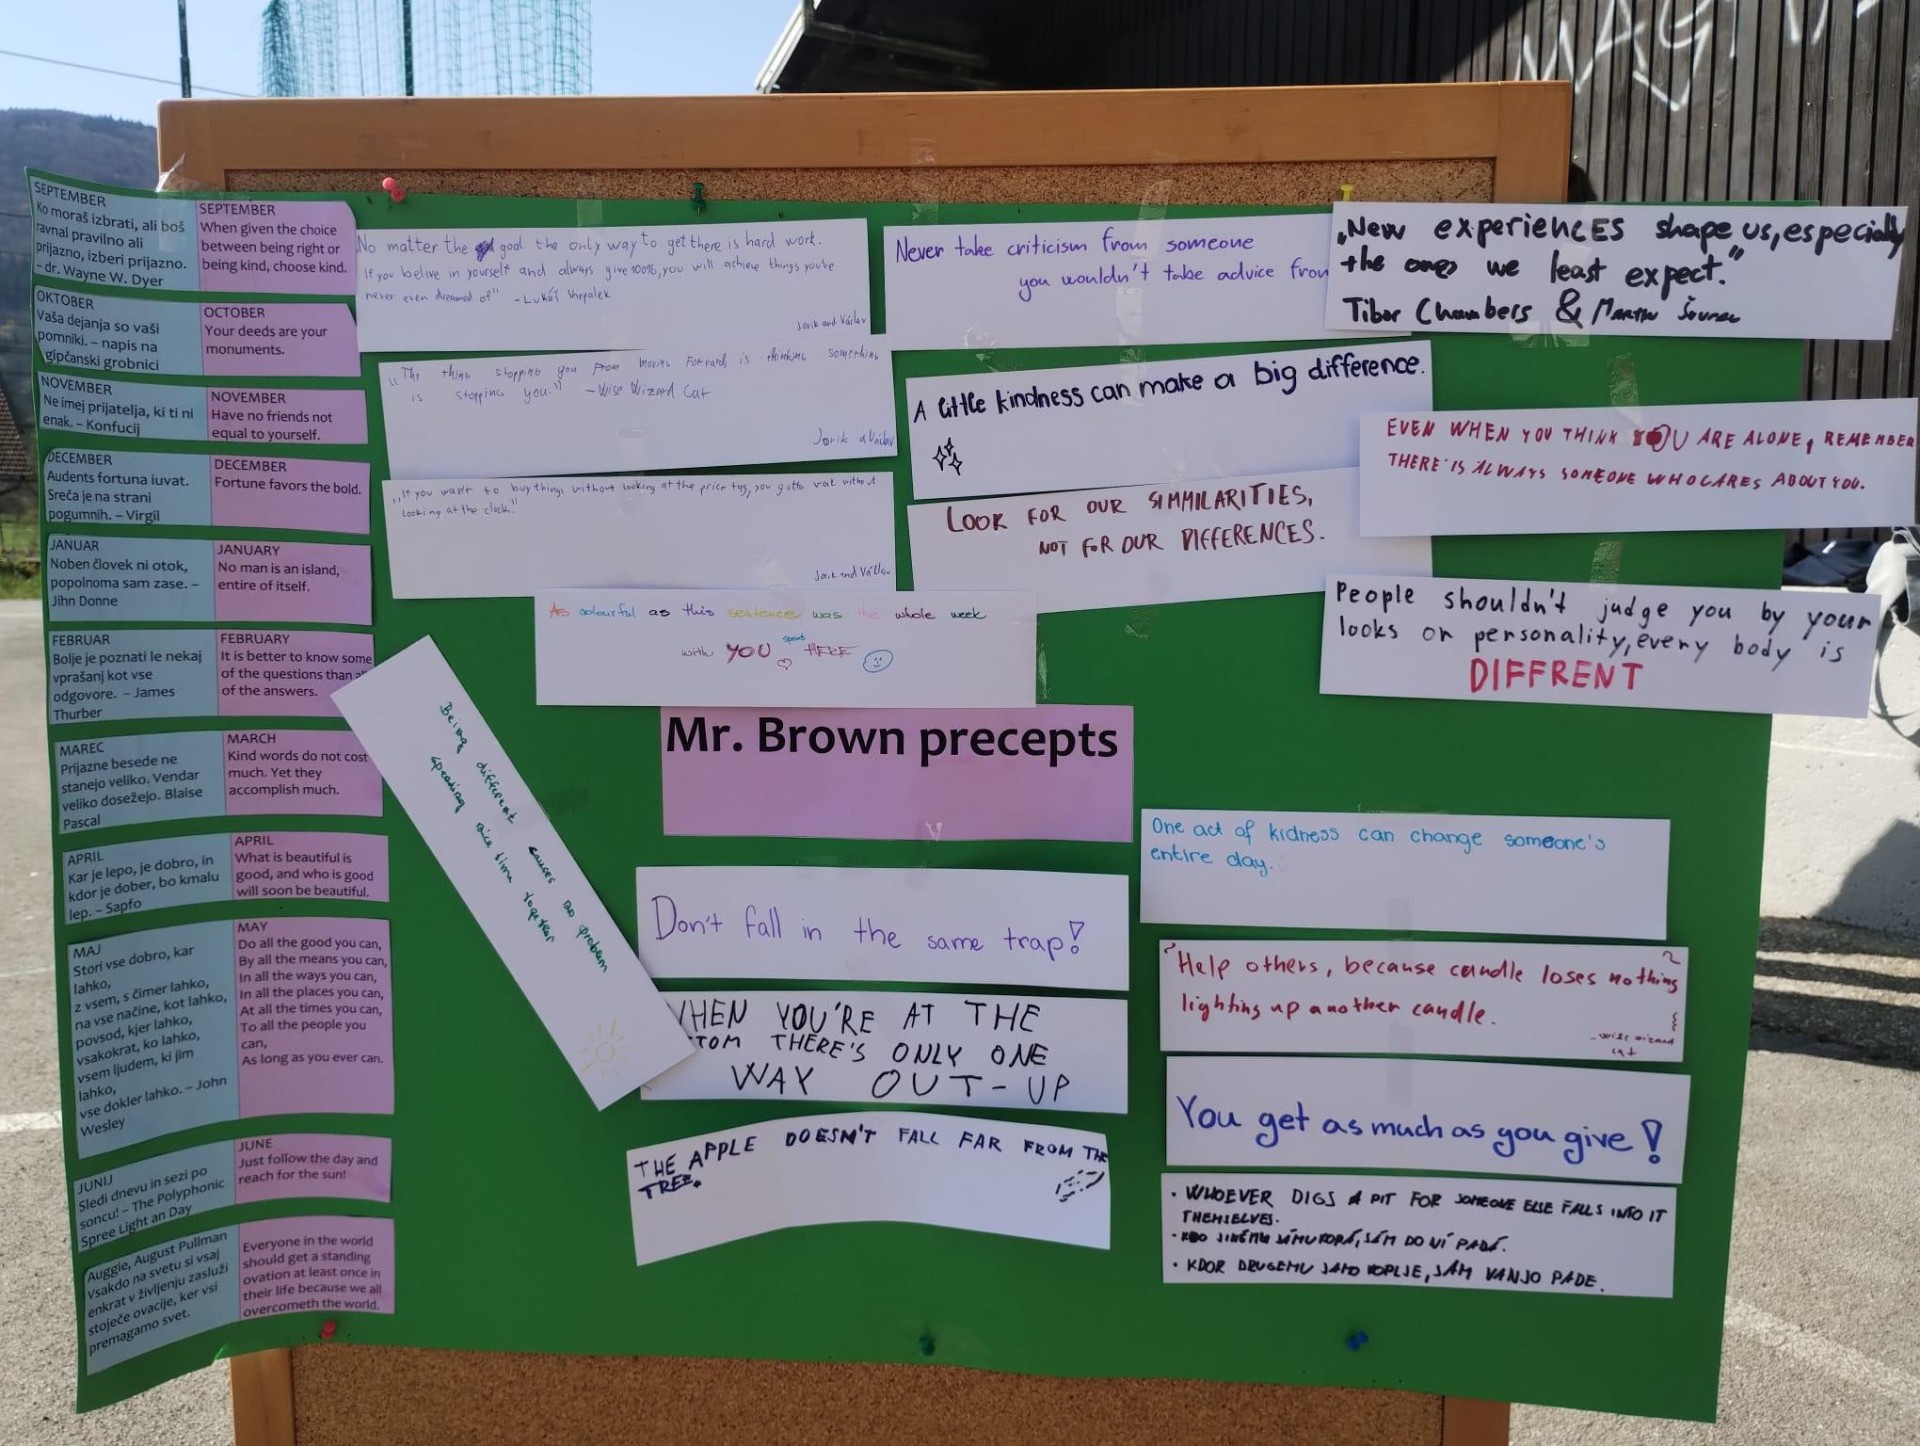 SEPTEMBER
Ko moraš izbrati, ali boš
ravnal pravilno ali
prijazno, izberi prijazno.
– dr. Wayne W. Dyer
SEPTEMBER
When given the choice
between being right or
being kind, choose kind.
OKTOBER
Vaša dejanja so vaši
pomniki. – napis na
gipčanski grobnici
OCTOBER
Your deeds are your
monuments.
NOVEMBER
Ne imej prijatelja, ki ti ni
enak. – Konfucij
NOVEMBER
Have no friends not
equal to yourself.
DECEMBER
Audents fortuna iuvat.
Sreča je na strani
pogumnih. – Virgil
DECEMBER
Fortune favors the bold.
JANUAR
Noben človek ni otok,
popolnoma sam zase. –
Jihn Donne
JANUARY
No man is an island,
entire of itself.
FEBRUAR
Bolje je poznati le nekaj
vprašanj kot vse
odgovore. – James
Thurber
FEBRUARY
It is better to know some
of the questions than
of the answers.
MAREC
Prijazne besede ne
stanejo veliko. Vendar
veliko dosežejo. Blaise
Pascal
MARCH
Kind words do not cost
much. Yet they
accomplish much.
APRIL
Kar je lepo, je dobro, in
kdor je dober, bo kmalu
lep. – Sapfo
APRIL
What is beautiful is
good, and who is good
will soon be beautiful.
MAJ
Stori vse dobro, kar
lahko,
z vsem, s čimer lahko,
na vse načine, kot lahko,
povsod, kjer lahko,
vsakokrat, ko lahko,
vsem ljudem, ki jim
lahko,
vse dokler lahko. – John
Wesley
MAY
Do all the good you can,
By all the means you can,
In all the ways you can,
In all the places you can,
At all the times you can,
To all the people you
can,
As long as you ever can.
JUNIJ
Sledi dnevu in sezi po
soncu! – The Polyphonic
Spree Light an Day
JUNE
Just follow the day and
reach for the sun!
Auggie, August Pullman
Vsakdo na svetu si vsaj
enkrat v življenju zasluži
stoječe ovacije, ker vsi
premagamo svet.
Everyone in the world
should get a standing
ovation at least once in
their life because we all
overcometh the world.
No matter the goal the only way to get there is hard work.
If you belive in yourself and always give 100%, you will achieve things you've
never even dreamed of" - Lukáš Krpálek
Jorik and Václav
„The thing stopping you from moving forward is thinking something
is stopping you." - Wise Wizard Cat
Jorik a Václav
„If you want to buy things without looking at the price tag, you gotta work without
looking at the clock."
Jorik and Václav
As colourful as this sentence was the whole week
with YOU spent HERE
Never take criticism from someone
you wouldn't take advice from
A little kindness can make a big difference.
LOOK FOR OUR SIMMILARITIES,
NOT FOR OUR DIFFERENCES.
„New experiences shape us, especially
the ones we least expect."
Tibor Chambers & Martin
EVEN WHEN YOU THINK YOU ARE ALONE, REMEMBER
THERE IS ALWAYS SOMEONE WHO CARES ABOUT YOU.
People shouldn't judge you by your
looks or personality, every body is
DIFFRENT
Being different causes no problem
spending nice time together
Mr. Brown precepts
Don't fall in the same trap!
WHEN YOU'RE AT THE
TOM THERE'S ONLY ONE
WAY OUT-UP
THE APPLE DOESN'T FALL FAR FROM THE
TREE.
One act of kidness can change someone's
entire day.
Help others, because candle loses nothing
lighting up another candle.
- wise wizard
cat
You get as much as you give!
• WHOEVER DIGS A PIT FOR SOMEONE ELSE FALLS INTO IT
THEMSELVES.
• KDO JINÉMU JÁMU KOPÁ, SÁM DO NÍ PADÁ.
• KDOR DRUGEMU JAMO KOPLJE, SAM VANJO PADE.